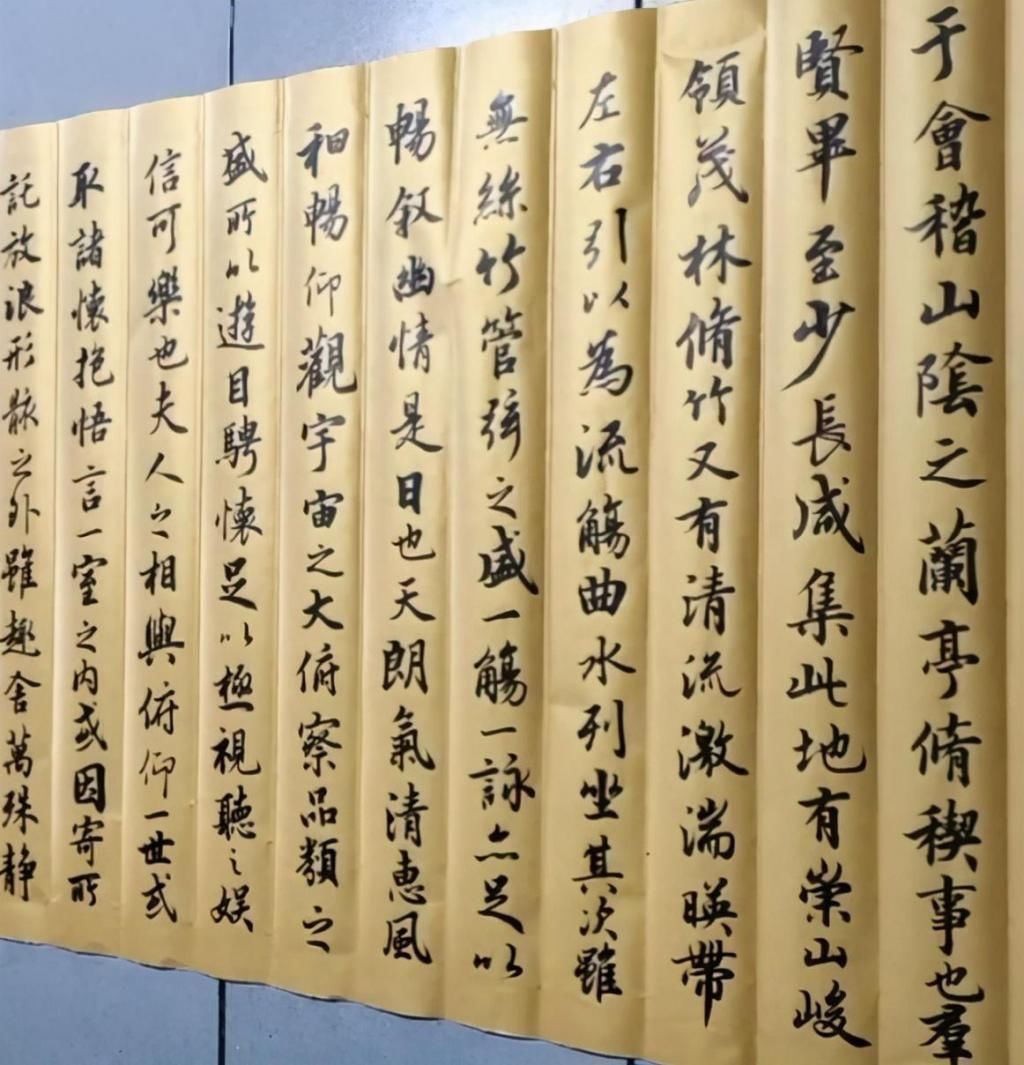 于會稽山陰之蘭亭脩稧事也羣
賢畢至少長咸集此地有崇山峻
領茂林脩竹又有清流激湍暎帶
左右引以為流觴曲水列坐其次雖
無絲竹管弦之盛一觴一詠亦足以
暢叙幽情是日也天朗氣清惠風
和暢仰觀宇宙之大俯察品類之
盛所以遊目騁懷足以極視聽之娛
信可樂也夫人之相與俯仰一世或
取諸懷抱悟言一室之內或因寄所
託放浪形骸之外雖趣舍萬殊静